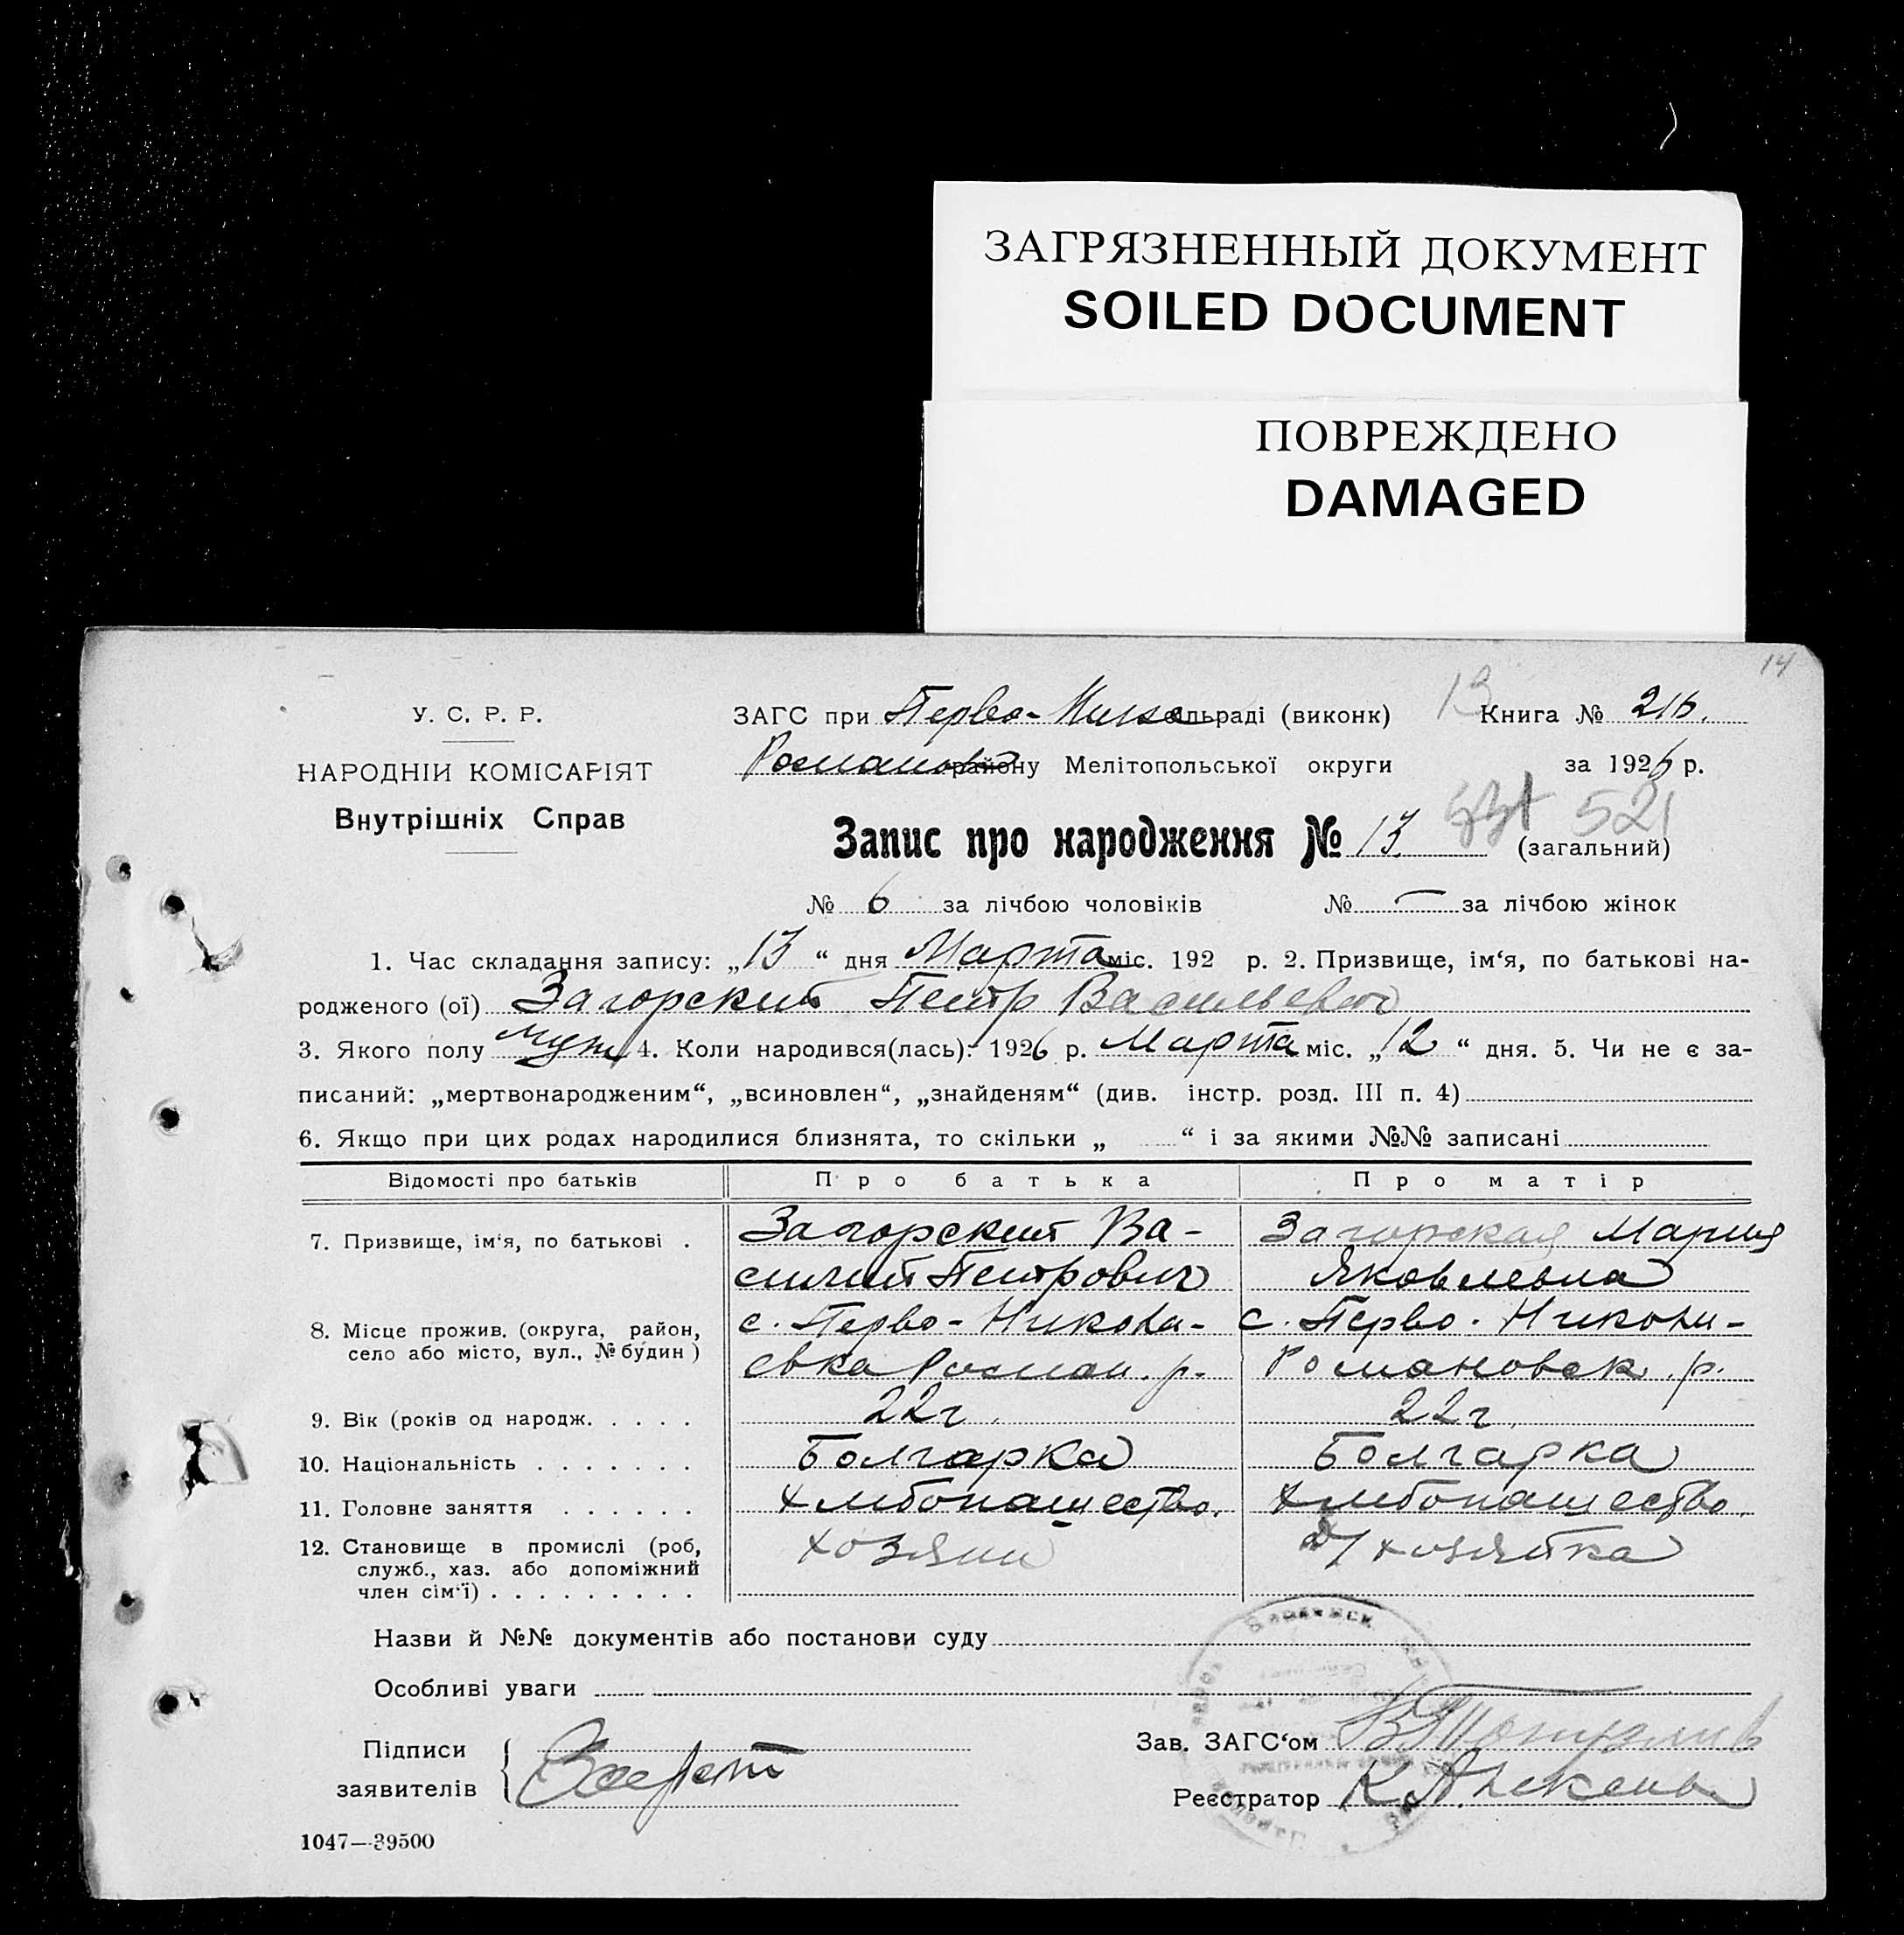 ЗАГРЯЗНЕННЫЙ ДОКУМЕНТ
SOILED DOCUMENT
ПОВРЕЖДЕНО
DAMAGED
14
У. С. Р. Р.
НАРОДНІЙ КОМІСАРІЯТ
Внутрішніх Справ
ЗАГС при Перво-Ник сельраді (виконк) 13 Книга № 216.
Романов району Мелітопольської округи за 1926 р.
Запис про народження № 13. 521 (загальний)
№ 6 за лічбою чоловіків № — за лічбою жінок
1. Час складання запису: „13“ дня Марта міс. 192 р. 2. Призвище, ім‘я, по батькові на-
родженого (ої) Загорский Петр Васильевич
3. Якого полу муж 4. Коли народився(лась): 1926 р. Марта міс. „12“ дня. 5. Чи не є за-
писаний: „мертвонародженим“, „всиновлен“, „знайденям“ (див. інстр. розд. III п. 4)
6. Якщо при цих родах народилися близнята, то скільки „ “ і за якими №№ записані
Відомості про батьків Про батька Про матір
7. Призвище, ім‘я, по батькові . Загорский Ва- Загорская Мария
силий Петрович Яковлевна
8. Місце прожив. (округа, район, с. Перво-Никола- с. Перво-Никола-
село або місто, вул., № будин) евка Роман. р. Романовск. р.
9. Вік (років од народж. . . . . 22 г. 22 г.
10. Національність . . . . . . . Болгарка Болгарка
11. Головне заняття . . . . . . Хлібопашество. Хлібопашество.
12. Становище в промислі (роб, хозяин д/хозяйка
служб., хаз. або допоміжний
член сім‘ї) . . . . . . . . .
Назви й №№ документів або постанови суду
Особливі уваги
Підписи
заявителів
Зав. ЗАГС‘ом
Реєстратор
1047—39500